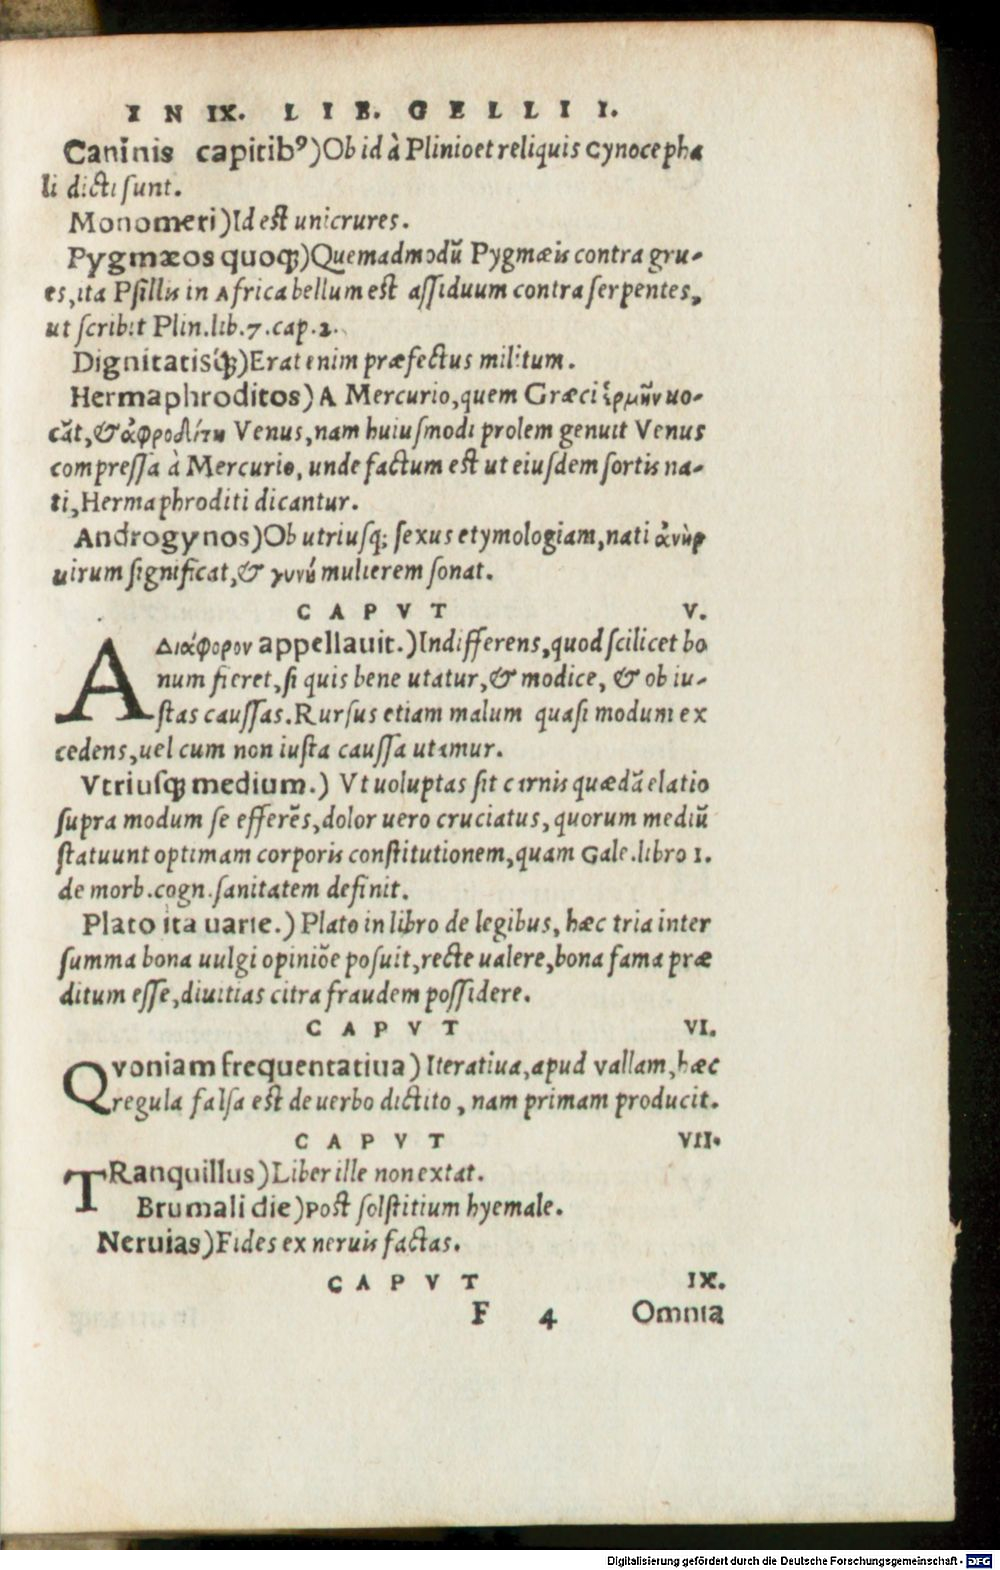 I N IX. L I B. G E L L I I.
Caninis capitibꝰ) Ob id à Plinio et reliquis Cynocepha
li dicti sunt.
Monomeri) Id est unicrures.
Pygmæos quoqꝫ) Quemadmodũ Pygmæis contra gru-
es, ita Psillis in Africa bellum est assiduum contra serpentes,
ut scribit Plin. lib. 7. cap. 2.
Dignitatisq́ꝫ) Erat enim præfectus militum.
Hermaphroditos) A Mercurio, quem Græci ἑρμῆν uo-
cãt, & ἀφροδίτη Venus, nam huiusmodi prolem genuit Venus
compressa à Mercurio, unde factum est ut eiusdem sortis na-
ti, Hermaphroditi dicantur.
Androgynos) Ob utriusq; sexus etymologiam, nati ἀνὴρ
uirum significat, & γυνὴ mulierem sonat.
C A P V T V.
A Διάφορον appellauit.) Indifferens, quod scilicet bo
num fieret, si quis bene utatur, & modice, & ob iu-
stas caussas. Rursus etiam malum quasi modum ex
cedens, uel cum non iusta caussa utimur.
Vtriusqꝫ medium.) Vt uoluptas sit carnis quædã elatio
supra modum se efferẽs, dolor uero cruciatus, quorum mediũ
statuunt optimam corporis constitutionem, quam Gale. libro 1.
de morb. cogn. sanitatem definit.
Plato ita uarie.) Plato in libro de legibus, hæc tria inter
summa bona uulgi opiniõe posuit, recte ualere, bona fama præ
ditum esse, diuitias citra fraudem possidere.
C A P V T VI.
Qvoniam frequentatiua) Iteratiua, apud vallam, hæc
regula falsa est de uerbo dictito, nam primam producit.
C A P V T VII.
TRanquillus) Liber ille non extat.
Brumali die) Post solstitium hyemale.
Neruias) Fides ex neruis factas.
C A P V T IX.
F 4 Omnia
Digitalisierung gefördert durch die Deutsche Forschungsgemeinschaft - DFG